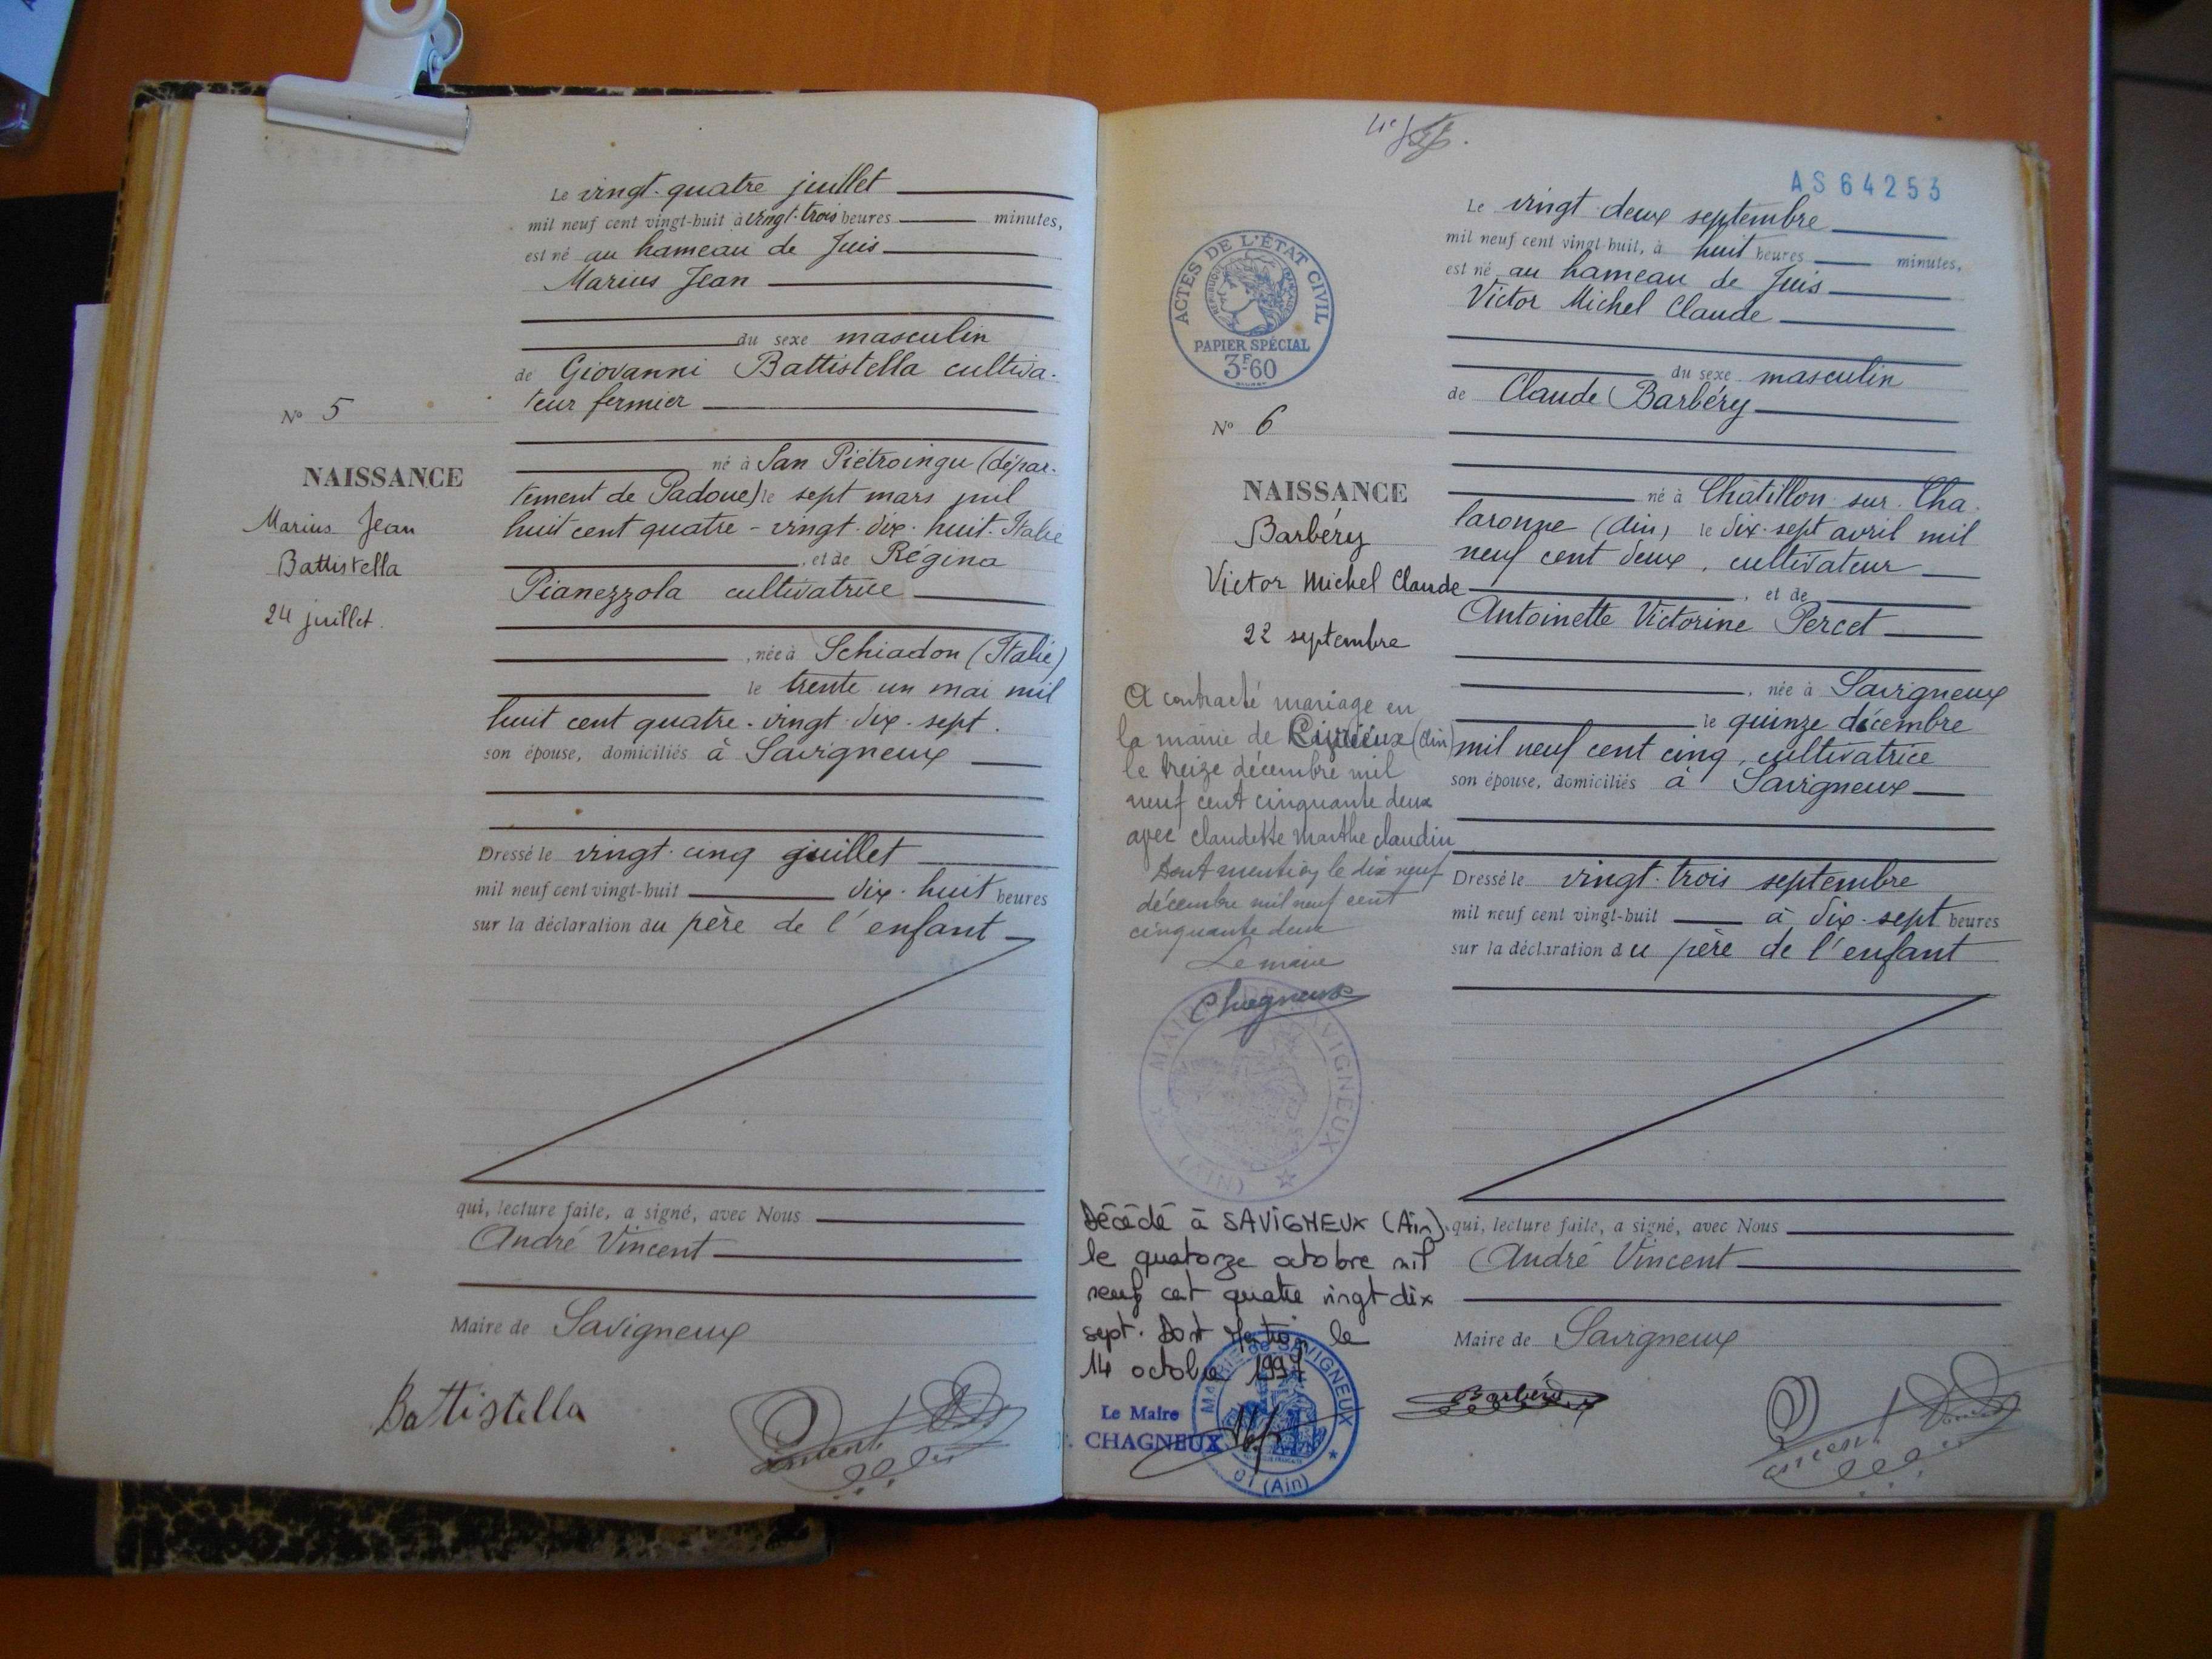 Le vingt-quatre juillet
mil neuf cent vingt-huit à vingt-trois heures minutes,
est né au hameau de Juis
Marius Jean
du sexe masculin
de Giovanni Battistella cultiva-
teur fermier
N° 5
né à San Piétroingu (dépar-
NAISSANCE
tement de Padoue) le sept mars mil
Marius Jean
huit cent quatre-vingt-dix-huit. Italie
Battistella
, et de Régina
24 juillet.
Pianezzola cultivatrice
, née à Schiadon (Italie)
le trente un mai mil
huit cent quatre-vingt-dix-sept.
son épouse, domiciliés à Savigneux
Dressé le vingt-cinq juillet
mil neuf cent vingt-huit dix-huit heures
sur la déclaration du père de l'enfant
qui, lecture faite, a signé, avec Nous
André Vincent
Maire de Savigneux
Battistella
Vincent
AS 64253
Le vingt deux septembre
mil neuf cent vingt-huit, à huit heures minutes,
est né au hameau de Juis
Victor Michel Claude
ACTES DE L'ÉTAT CIVIL
PAPIER SPÉCIAL
3F60
du sexe masculin
de Claude Barbéry
N° 6
né à Châtillon-sur-Cha-
NAISSANCE
laronne (Ain) le dix-sept avril mil
Barbéry
neuf cent deux, cultivateur
Victor Michel Claude
, et de
Antoinette Victorine Percet
22 septembre
, née à Savigneux
le quinze décembre
mil neuf cent cinq, cultivatrice
son épouse, domiciliés à Savigneux
A contracté mariage en
la mairie de (Ain)
le treize décembre mil
neuf cent cinquante deux
avec Claudette Marthe Claudin
Dont mention le dix neuf
décembre mil neuf cent
cinquante deux
Le maire
Chagneux
MAIRIE DE SAVIGNEUX (AIN)
Dressé le vingt-trois septembre
mil neuf cent vingt-huit à dix-sept heures
sur la déclaration du père de l'enfant
Décédé à SAVIGNEUX (Ain)
le quatorze octobre mil
neuf cent quatre vingt dix
sept. Dont Mention le
14 octobre 1997
Le Maire
CHAGNEUX
MAIRIE de SAVIGNEUX
01 (Ain)
qui, lecture faite, a signé, avec Nous
André Vincent
Maire de Savigneux
Barbéry
Vincent